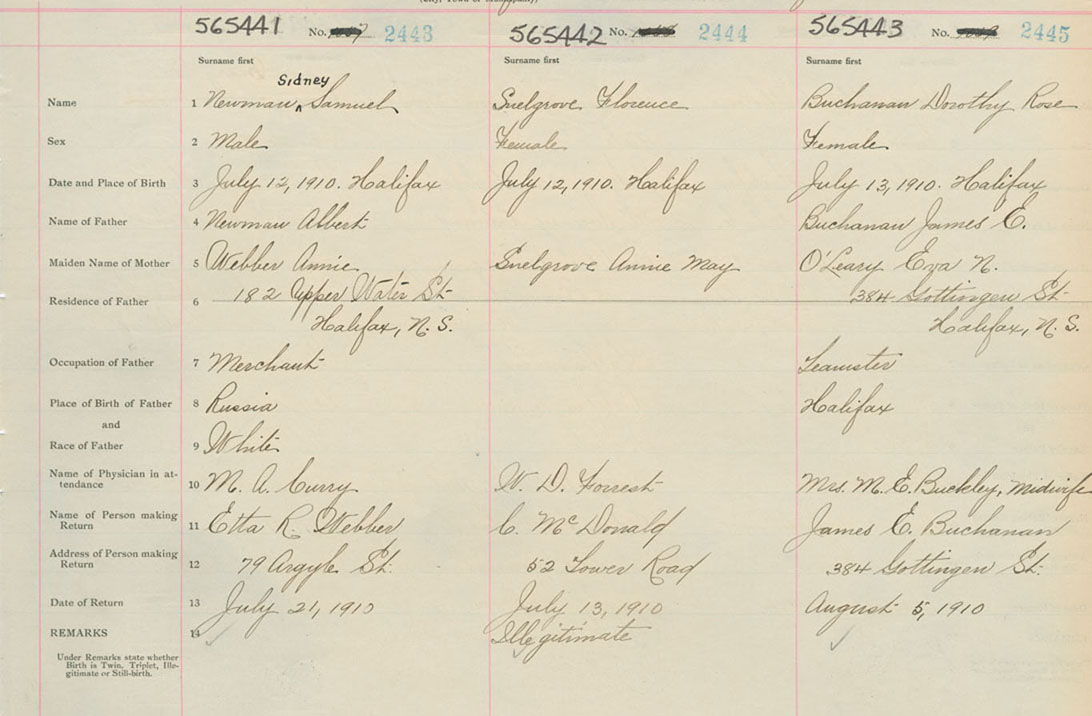 565441 No. 2443 565442 No. 2444 565443 No. 2445
Surname first Surname first Surname first
Sidney
Name 1 Newman ^ Samuel Snelgrove Florence Buchanan Dorothy Rose
Sex 2 Male Female Female
Date and Place of Birth 3 July 12, 1910. Halifax July 12, 1910. Halifax July 13, 1910. Halifax
Name of Father 4 Newman Albert Buchanan James E.
Maiden Name of Mother 5 Webber Annie Snelgrove Annie May O'Leary Eva N.
Residence of Father 6 182 Upper Water St. 384 Gottingen St.
Halifax, N. S. Halifax, N. S.
Occupation of Father 7 Merchant Teamster
Place of Birth of Father 8 Russia Halifax
and
Race of Father 9 White
Name of Physician in at-
tendance 10 M. A. Curry W. D. Forrest Mrs. M. E. Buckley, Midwife
Name of Person making
Return 11 Etta R. Webber C. McDonald James E. Buchanan
Address of Person making
Return 12 79 Argyle St. 52 Tower Road 384 Gottingen St.
Date of Return 13 July 21, 1910 July 13, 1910 August 5, 1910
REMARKS 14 Illegitimate
Under Remarks state whether
Birth is Twin, Triplet, Ille-
gitimate or Still-birth.